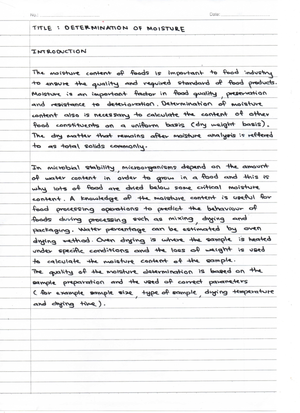 No.: Date:
TITLE : DETERMINATION OF MOISTURE
INTRODUCTION
The moisture content of foods is important to food industry
to ensure the quality and required standard of food products.
Moisture is an important factor in food quality, preservation
and resistance to deterioration. Determination of moisture
content also is necessary to calculate the content of other
food constituents on a uniform basis (dry weight basis).
The dry matter that remains after moisture analysis is reffered
to as total solids commonly.
In microbial stability microorganisms depend on the amount
of water content in order to grow in a food and this is
why lots of food are dried below some critical moisture
content. A knowledge of the moisture content is useful for
food processing operations to predict the behaviour of
foods during processing such as mixing drying and
packaging. Water percentage can be estimated by oven
drying method. Oven drying is where the sample is heated
under specific conditions and the loss of weight is used
to calculate the moisture content of the sample.
The quality of the moisture determination is based on the
sample preparation and the used of correct parameters
( for example sample size, type of sample, drying temperature
and drying time ).